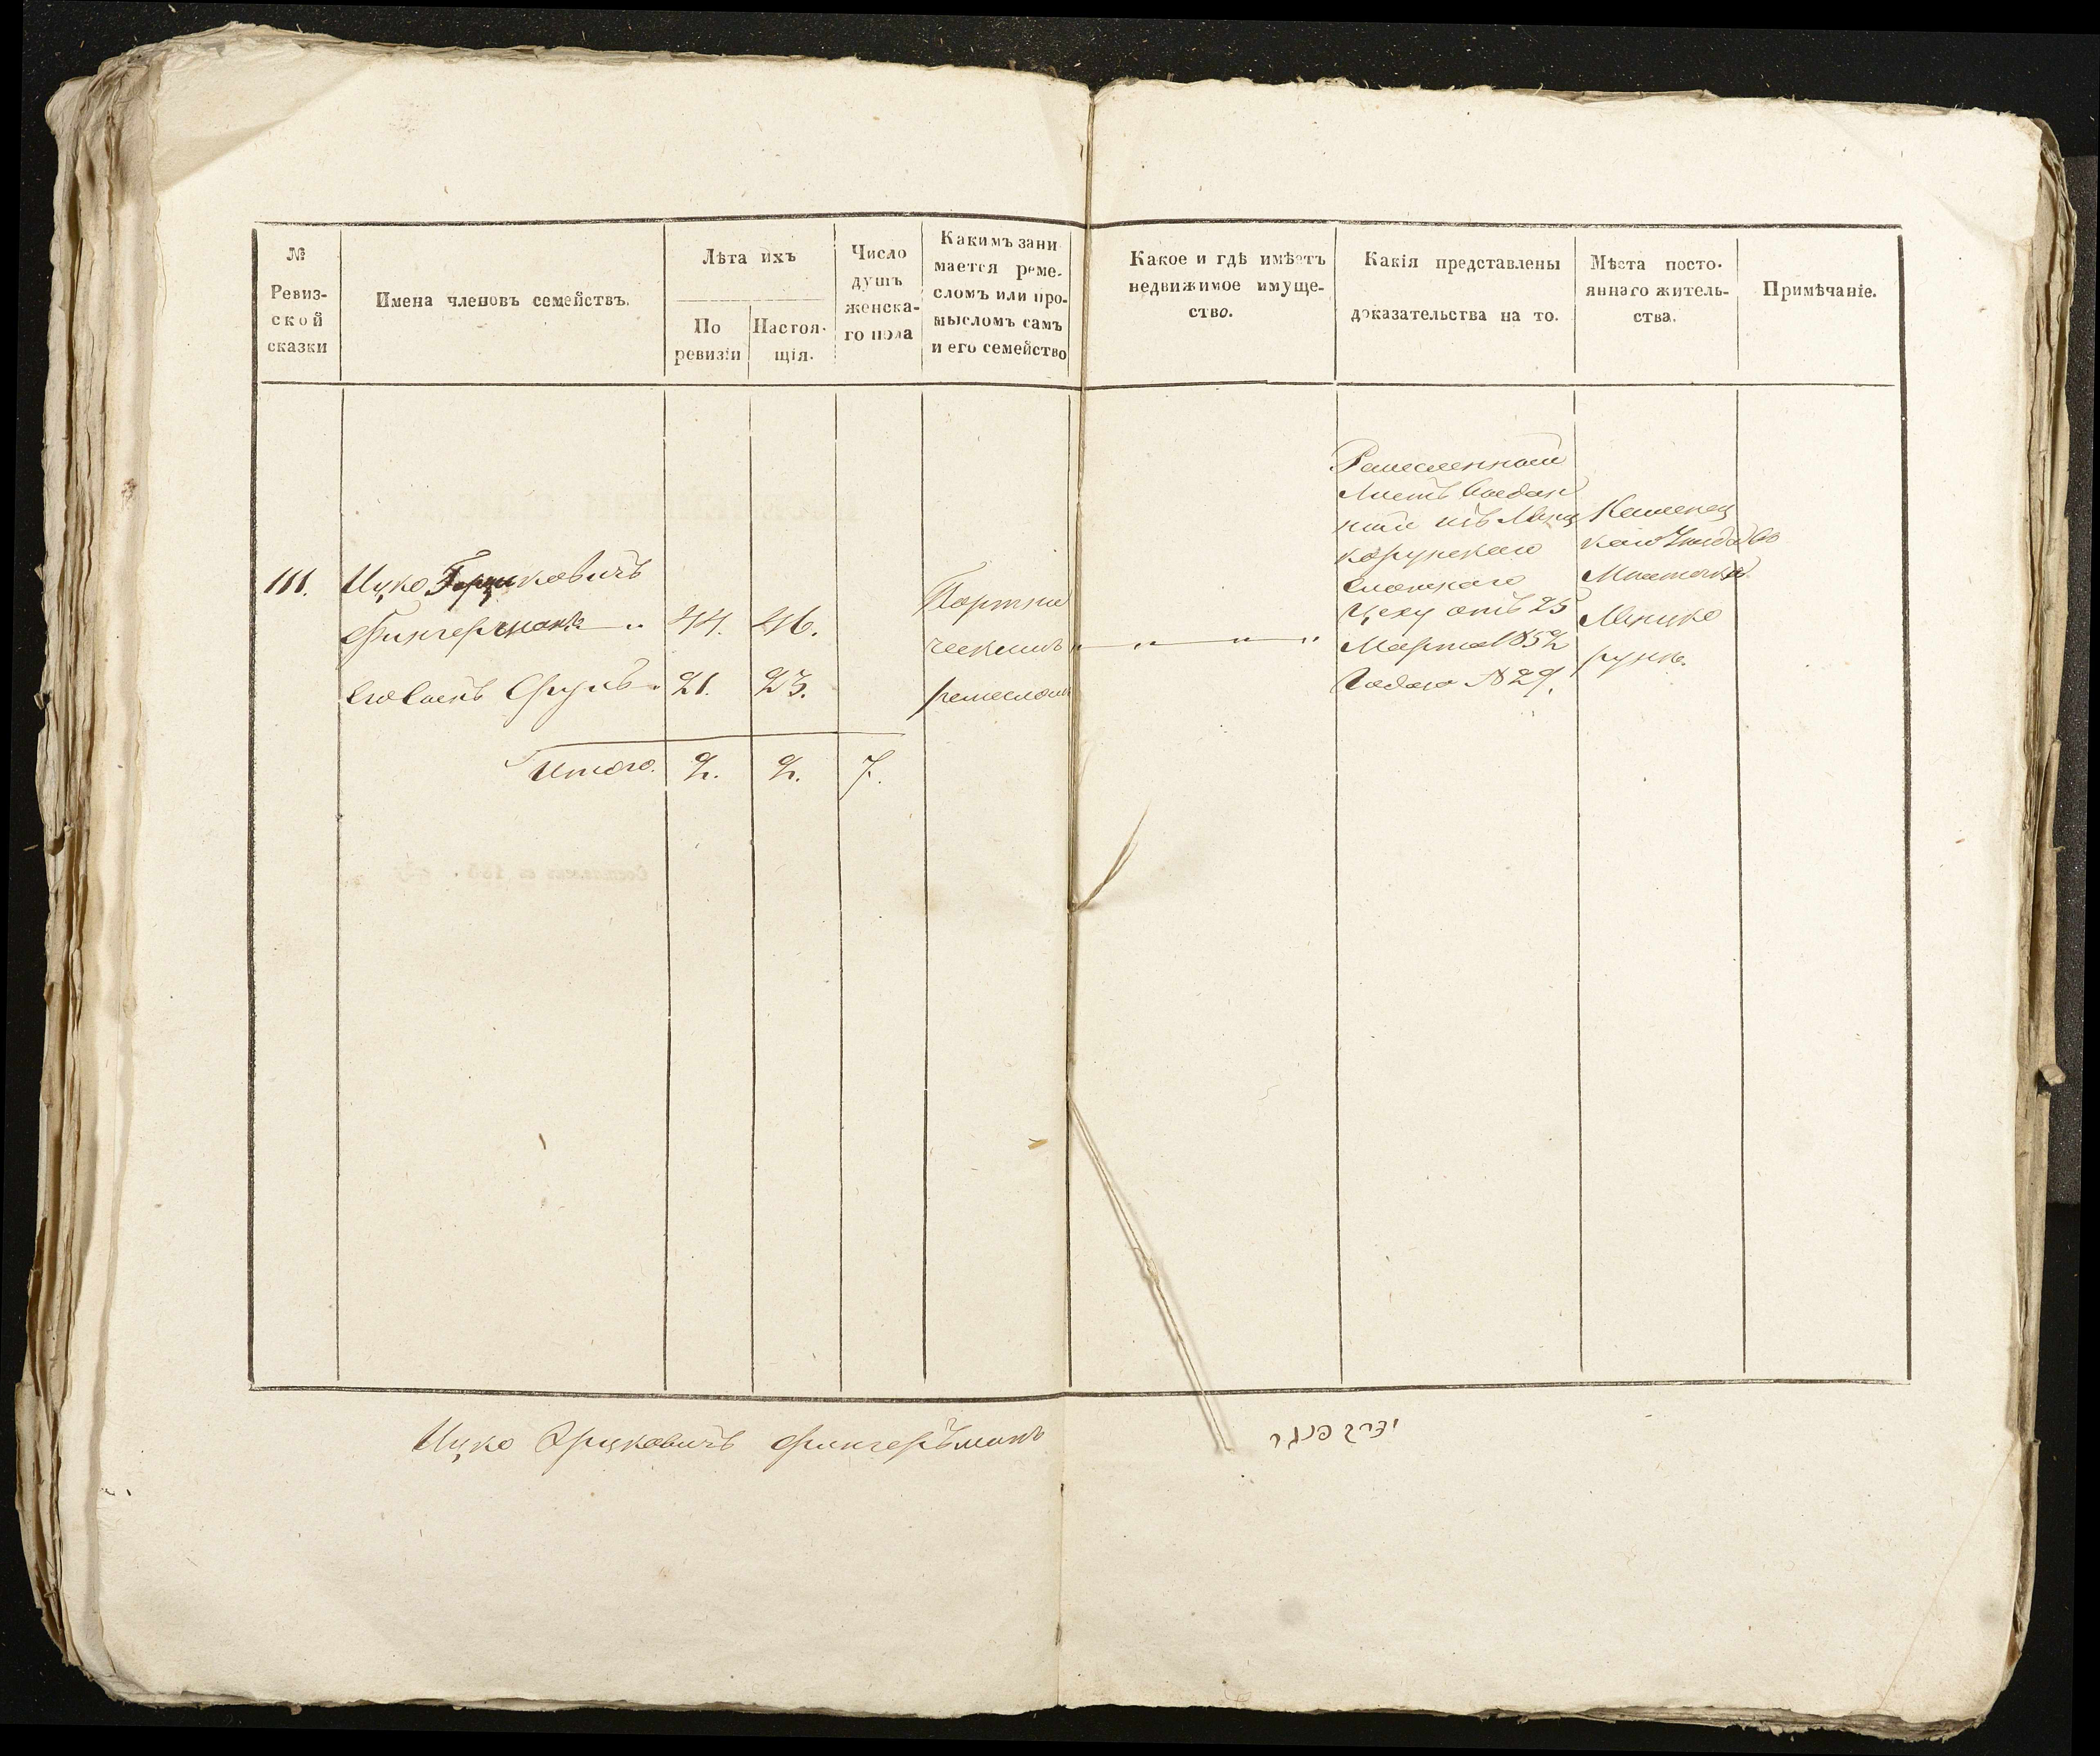 №
Ревиз-
ской
сказки
Имена членовъ семействъ.
Лѣта ихъ
По
ревизіи
Настоя-
щія.
Число
душъ
женска-
го пола
Какимъ зани
мается реме-
сломъ или про-
мысломъ самъ
и его семейство
Какое и гдѣ имѣетъ
недвижимое имуще-
ство.
Какія представлены
доказательства на то.
Мѣста посто-
яннаго житель-
ства.
Примѣчаніе.
111.
Ицко Герцковичъ
Фингерманъ „ 44. 46.
Его Сынъ Сруль „ 21. 23.
Итого. 2. 2. 7.
Портни
ческимъ
ремесломъ
Ремесленный
Листъ Выдан
ный изъ Минц
корунскаго
Цеху отъ 25
Марта 1852
Года № 29.
Каменец
каго Уѣзда Въ
Мѣстечкѣ
Минцко
рункѣ.
Ицко Эрцковичъ Фингерьманъ